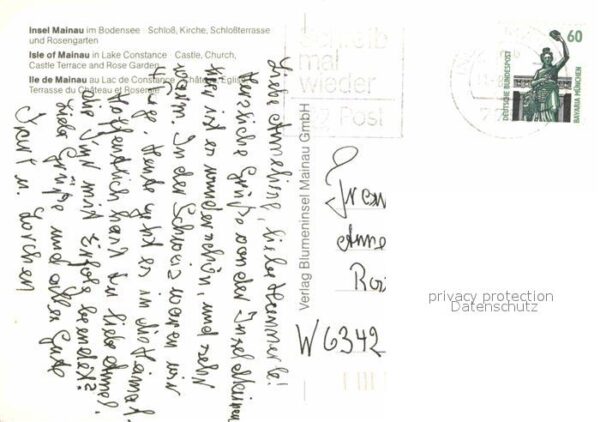 Insel Mainau im Bodensee · Schloß, Kirche, Schloßterrasse
und Rosengarten
Isle of Mainau in Lake Constance · Castle, Church,
Castle Terrace and Rose Garden
Ile de Mainau au Lac de Constance · Château, Eglise
Terrasse du Château et Roseraie
Schreib
mal
wieder
Post
60
DEUTSCHE BUNDESPOST
BAVARIA MÜNCHEN
Liebe Anneliese, lieber Hammerle!
Herzliche Grüße von der Insel Mainau
Hier ist es wunderschön, und sehr
warm. In der Schweiz waren wir
4 Tage. Heute geht es in die Heimat.
Hoffentlich hast Du liebe Annel.
die Jmt mit Erfolg beendet?
Liebe Grüße und alles Gute
Traut u. Lorchen
Verlag Blumeninsel Mainau GmbH
Anne
W 6342
privacy protection
Datenschutz